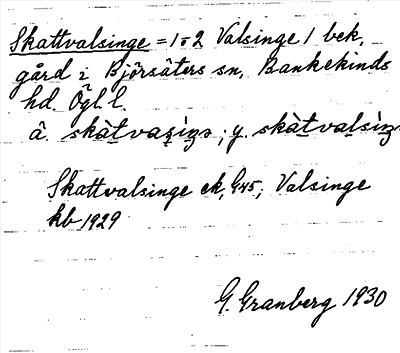 Skattvalsinge = 1 o 2 Valsinge / bek,
gård i Björsäters sn, Bankekinds
hd. Ögl. l.
skàtvalsìŋ
Skattvalsinge ek, G45; Valsinge
kb 1929
G. Granberg 1930